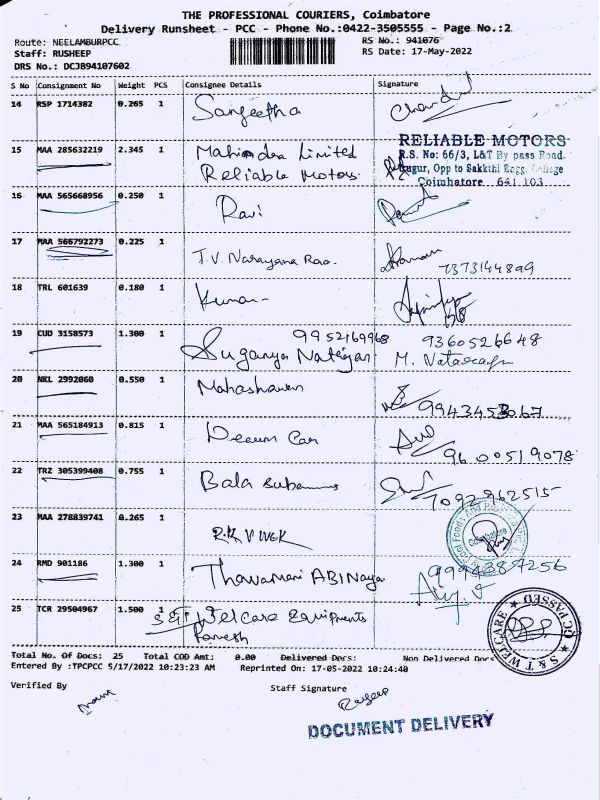 THE PROFESSIONAL COURIERS, Coimbatore
Delivery Runsheet - PCC - Phone No.:0422-3505555 - Page No.:2
Route: NEELAMBURPCC
RS No.: 941076
Staff: RUSHEEP
RS Date: 17-May-2022
DRS No.: DCJB94107602
S No Consignment No Weight PCS Consignee Details Signature
14 RSP 1714382 0.265 1 Sangeetha
15 MAA 285632219 2.345 1 Mahindra Limited
Reliable Motors
RELIABLE MOTORS
R.S. No: 66/3, L&T By pass Road
Opp to Sakkthi Engg. College
Coimbatore 641 103
16 MAA 565668956 0.250 1 Ravi
17 MAA 566792273 0.225 1 T.V. Narayana Rao.
7373144899
18 TRL 601639 0.180 1 Kumar
19 CUD 3158573 1.300 1 Suganya Natajan 9952169968 9360526648
20 NKL 2992060 0.550 1 9943453067
21 MAA 565184913 0.815 1 9600519078
22 TRZ 305399408 0.755 1 Bala 7092962515
23 MAA 278839741 0.265 1 R.K VIVEK
24 RMD 901186 1.300 1 Thavamani ABINaya
25 TCR 29504967 1.500 1 S&T Welcare Equipments
S&T WELCARE
PASSED
Total No. Of Docs: 25 Total COD Amt: 0.00 Delivered Docs: Non Delivered Docs
Entered By :TPCPCC 5/17/2022 10:23:23 AM Reprinted On: 17-05-2022 10:24:40
Verified By Staff Signature
DOCUMENT DELIVERY